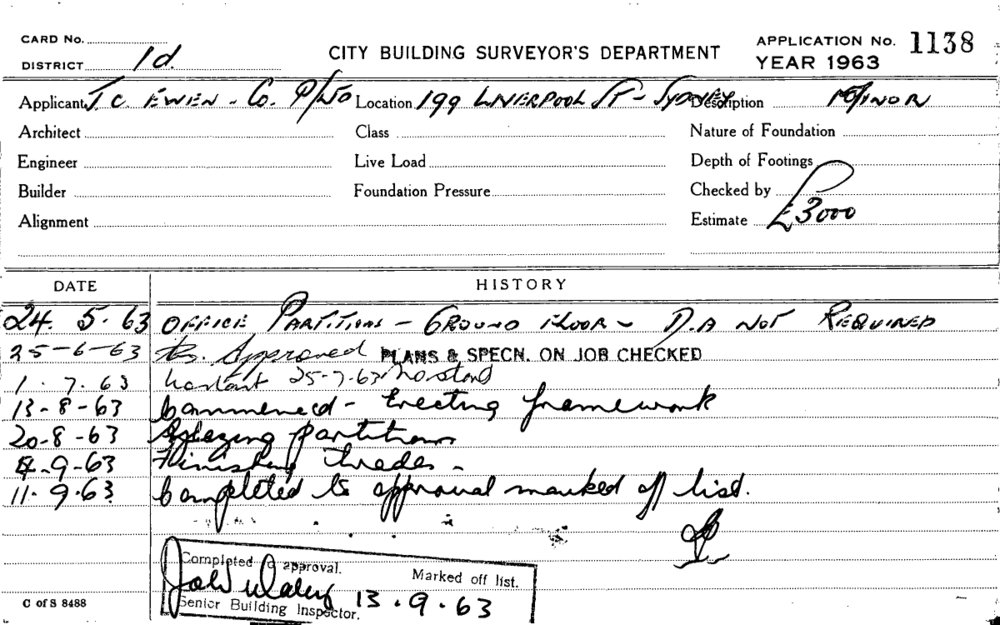 CARD No.
CITY BUILDING SURVEYOR'S DEPARTMENT
APPLICATION No. 1138
DISTRICT 1d.
YEAR 1963
Applicant J. C. EWEN - Co. P/LTD Location 199 LIVERPOOL ST - SYDNEY Description MINOR
Architect Class Nature of Foundation
Engineer Live Load Depth of Footings
Builder Foundation Pressure Checked by
Alignment Estimate £3000
DATE HISTORY
24. 5. 63 OFFICE PARTITIONS - GROUND FLOOR - D.A NOT REQUIRED
25-6-63 Approved PLANS & SPECN. ON JOB CHECKED
1. 7. 63 no start 25-7-63 no start
13-8-63 Commenced - Erecting framework
20-8-63 partitions
4-9-63 Finishing trades -
11. 9. 63 Completed to approval marked off list.
Completed to approval. Marked off list.
Senior Building Inspector. 13. 9. 63
C of S 8488